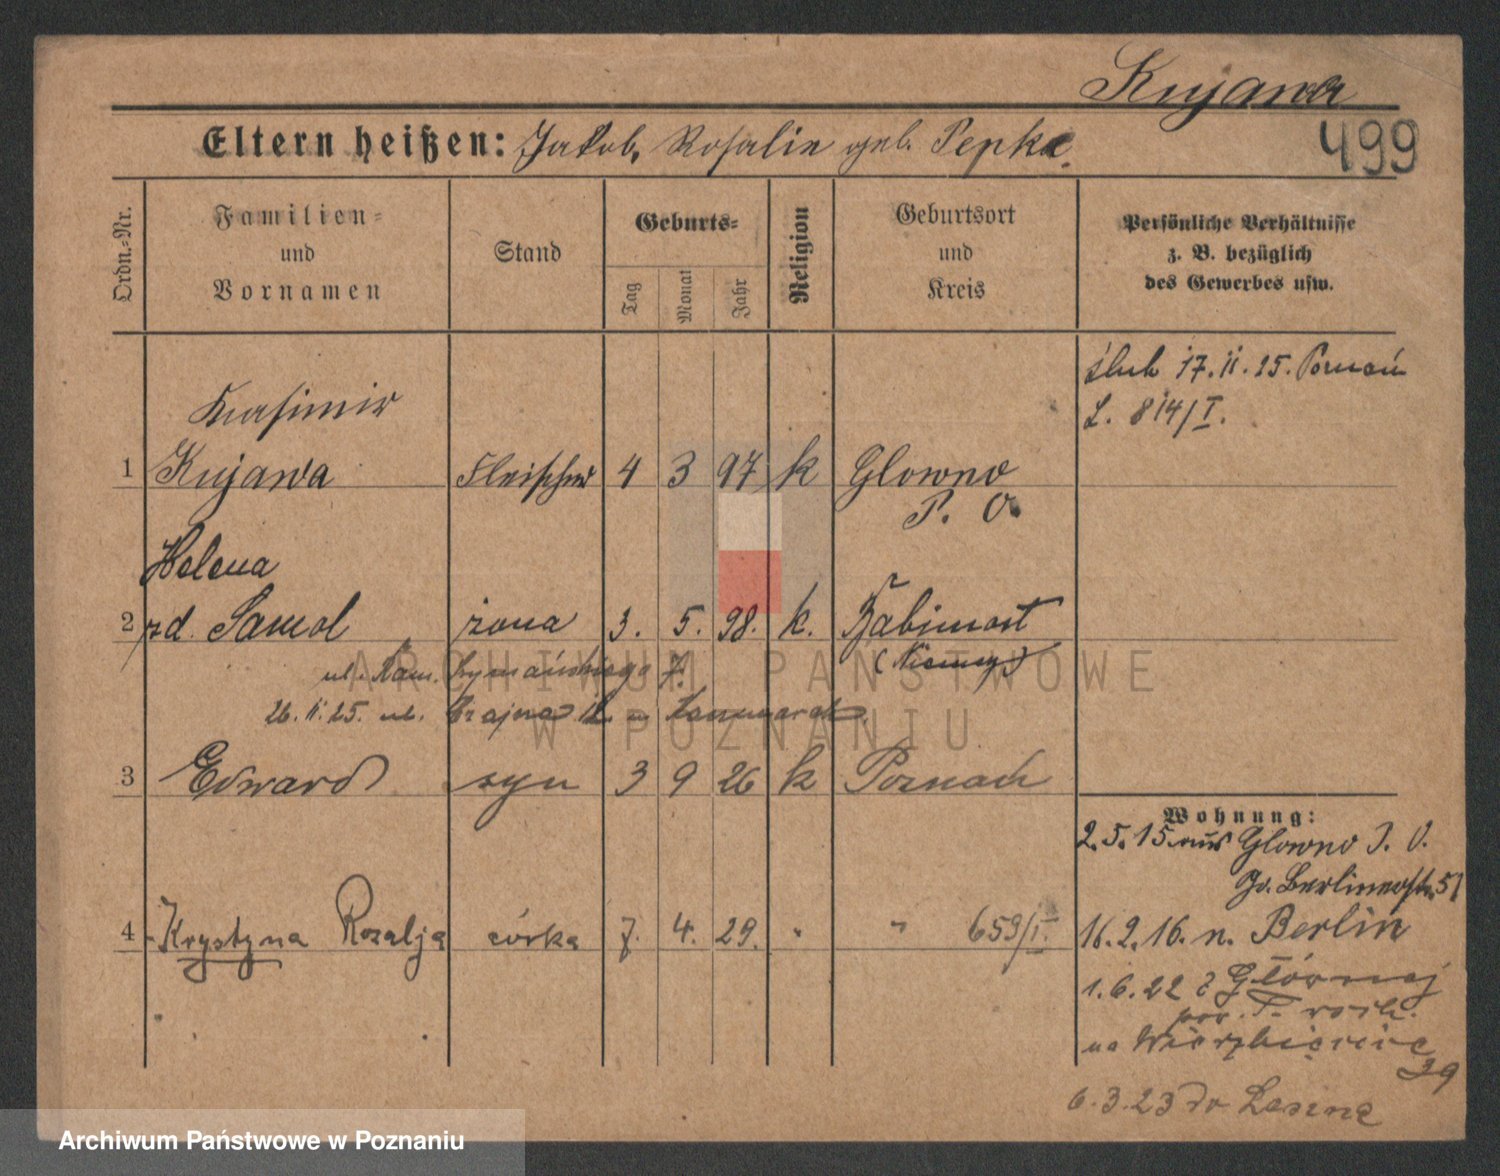 Kujawa
499
Eltern heißen: Jakob, Rosalie geb. Pepke.
Ordn.-Nr.
Familien- und Vornamen
Stand
Geburts-
Tag
Monat
Jahr
Religion
Geburtsort und Kreis
Persönliche Verhältnisse
z. B. bezüglich
des Gewerbes usw.
ślub 17.11.25. Poznań
L. 814/I.
Kasimir
1 Kujawa Fleischer 4 3 97 k Glowno
P. O.
Helena
2 zd. Samol żona 3. 5. 98. k. Babimost
(Niemcy)
ul. 7.
26.11.25. ul.
3 Edward syn 3 9 26 k Poznań
Wohnung:
2.5.15 aus Glowno P. O.
Gr. Berlinerstr. 51
4 Krystyna Rozalja córka 7. 4. 29. " " 659/I.
16.2.16. n. Berlin
1.6.22 z Głównej
pow. P. wsch.
na Wierzbięcice
39
6.3.23 do
ARCHIWUM PAŃSTWOWE
W POZNANIU
Archiwum Państwowe w Poznaniu